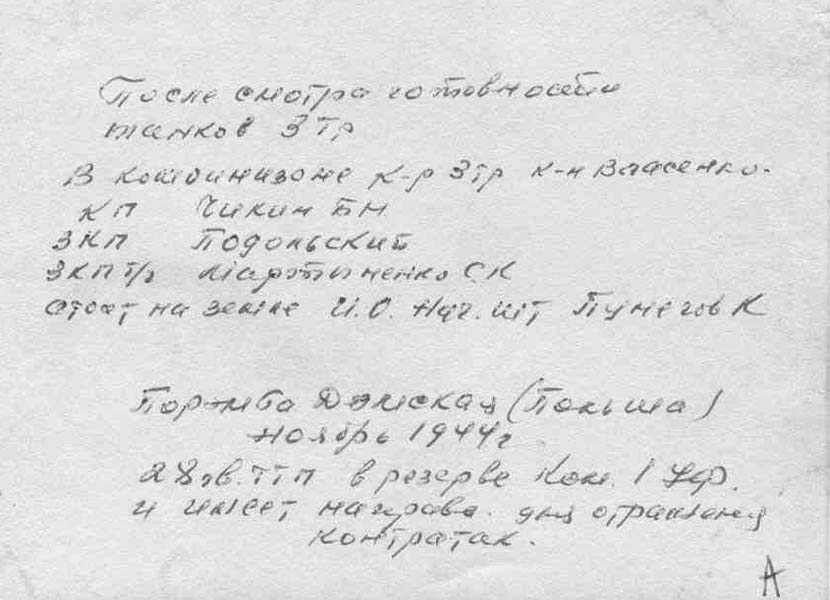 После смотра готовности
танков 3 тр
В комбинизоне к-р 3 тр к-н Власенко.
КП Чикин БН
ЗКП Подольский
ЗКП т/ч Мартыненко С.К
стоят на земле И.О. Нач. шт Пунегов К
Порэмба Дэмская (Польша)
ноябрь 1944 г.
28 гв. ТТП в резерве Ком. 1 УФ.
и имеет направ. для отражения
контратак.
А